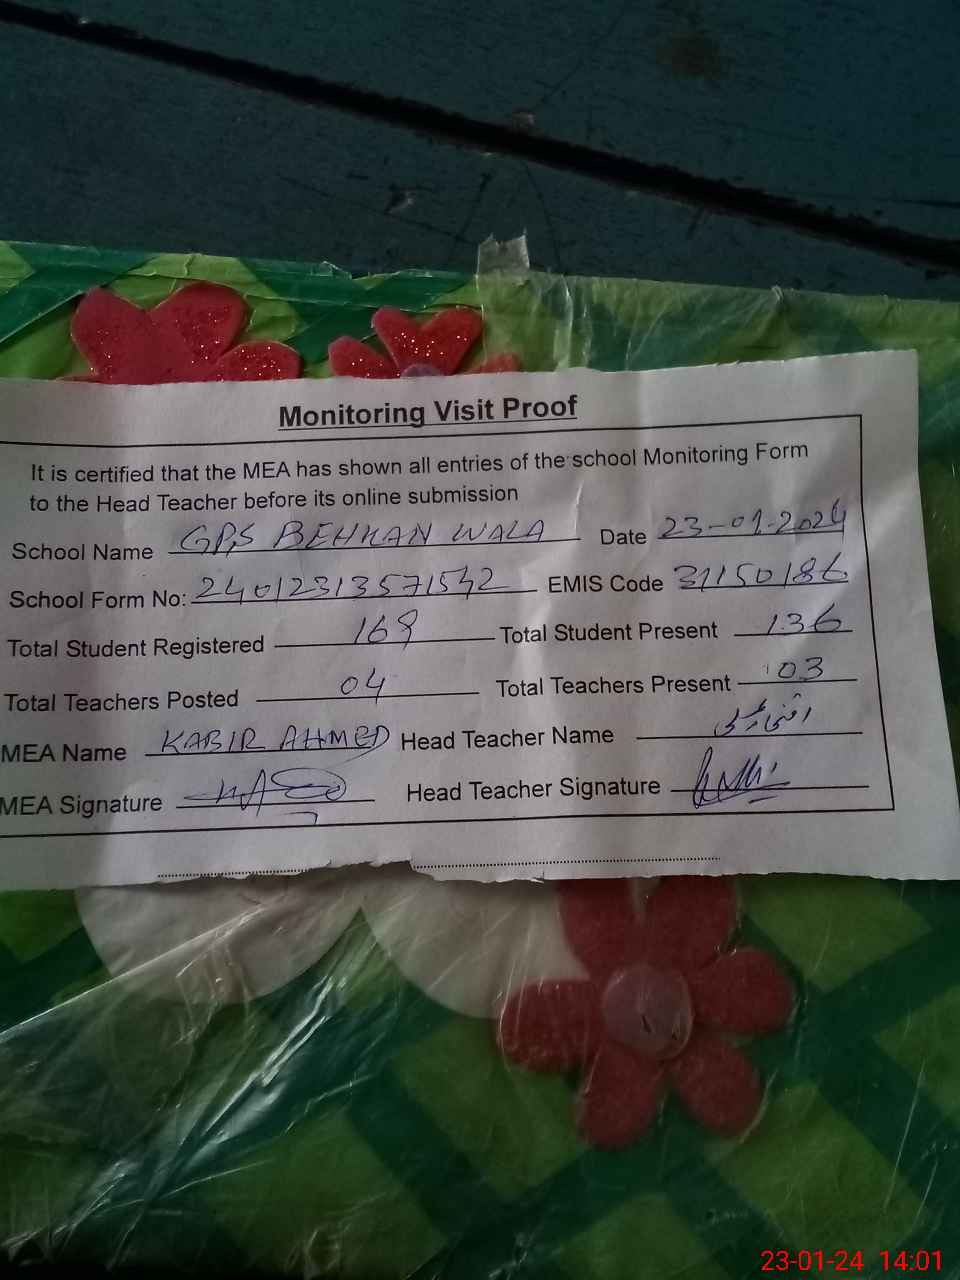 Monitoring Visit Proof
It is certified that the MEA has shown all entries of the school Monitoring Form
to the Head Teacher before its online submission
School Name GPS BEHKAN WALA Date 23-01-2024
School Form No: 24012313571542 EMIS Code 31150186
Total Student Registered 169 Total Student Present 136
Total Teachers Posted 04 Total Teachers Present 03
MEA Name KABIR AHMED Head Teacher Name
MEA Signature Head Teacher Signature
23-01-24 14:01